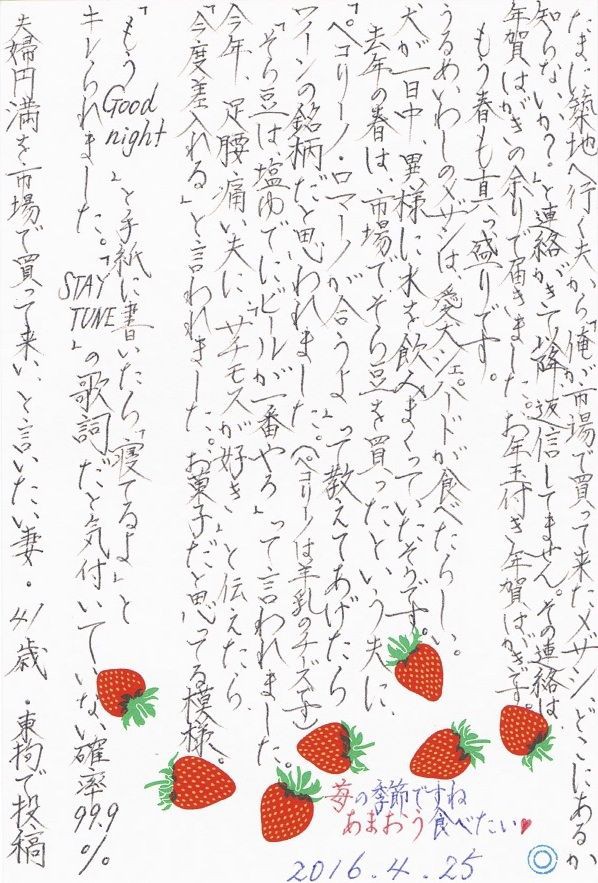 たまに築地へ行く夫から「俺が市場で買って来たメザシ、どこにあるか
知らないか？」と連絡がきて以降、返信してません。その連絡は
年賀はがきの余りで届きました。お年玉付き年賀はがきで。
もう春も真っ盛りです。
うるめいわしのメザシは、愛犬シェパードが食べたらしい。
犬が一日中、異様に水を飲みまくっていたそうです。
去年の春は、市場でそら豆を買ったという夫に、
「ペコリーノ・ロマーノが合うよ」って教えてあげたら
ワインの銘柄だと思われました。（ペコリーノは羊乳のチーズです）
「そら豆は塩ゆでにビールが一番やろ」って言われました。
今年、足腰痛い夫に、「サチモスが好き」と伝えたら、
「今度差入れる」と言われました。お菓子だと思ってる模様。
「もう Good night 」と手紙に書いたら「寝てるよ」と
キレられました。「STAY TUNE」の歌詞だと気付いていない確率99.9%
夫婦円満を市場で買って来い、と言いたい妻・41歳・東拘で投稿
苺の季節ですね
あまおう食べたい♥
2016.4.25